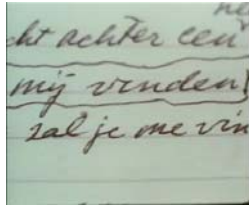 cht achter een
mij vinden
zal je me vin